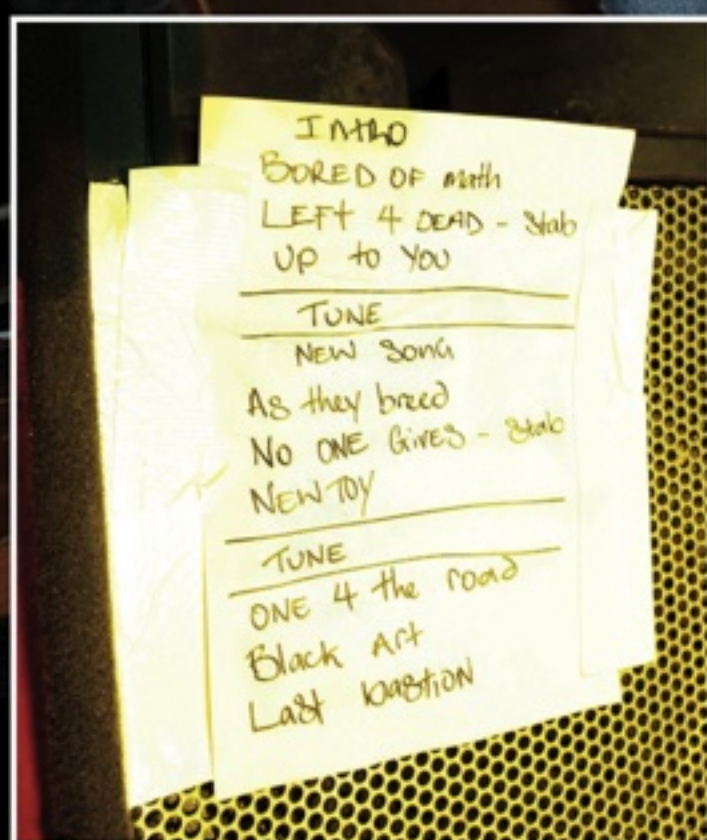 INTRO
BORED OF math
LEFT 4 DEAD - Stab
UP to YOU
TUNE
NEW SONG
As they breed
NO ONE GIVES - Stab
NEW TOY
TUNE
ONE 4 the road
Black Art
Last bastiON